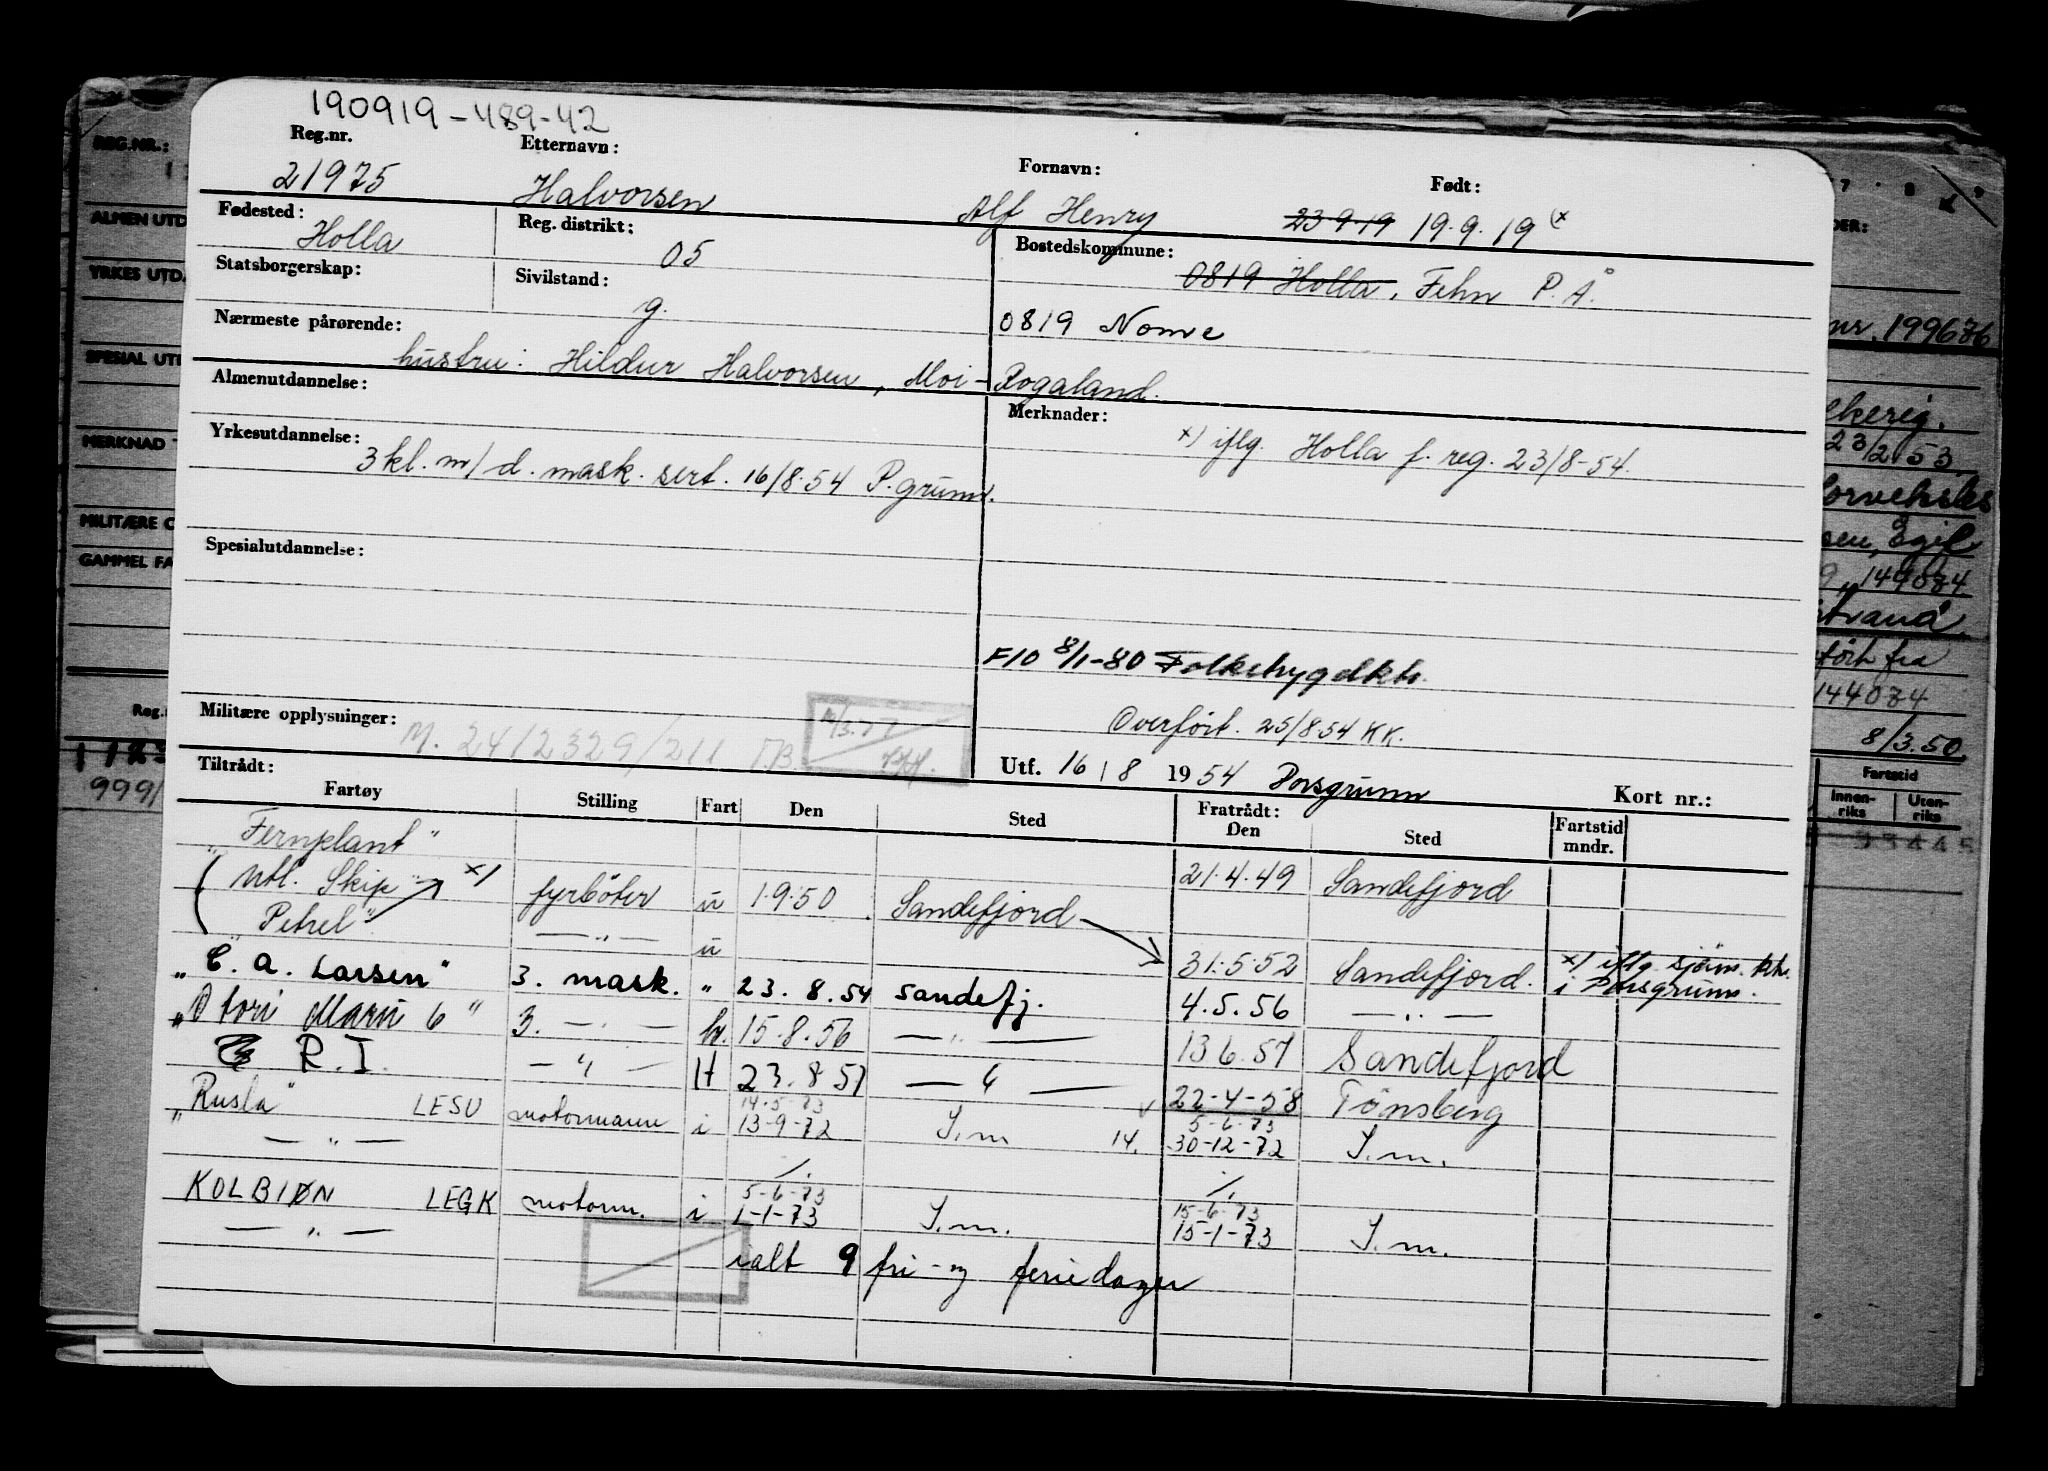 190919-489-42
Reg.nr. Etternavn: Fornavn: Født:
21975 Halvorsen Alf Henry 23-9-19 19.9.19 (x
Fødested: Reg. distrikt: Bostedskommune:
Holla 05 0819 Holla, Fehn P.Å.
Statsborgerskap: Sivilstand:
g. 0819 Nome
Nærmeste pårørende:
hustru: Hildur Halvorsen, Moi - Rogaland.
Almenutdannelse: Merknader:
x) iflg. Holla f. reg. 23/8-54.
Yrkesutdannelse:
3 kl. m/d. mask. sert. 16/8.54 P.grunn.
Spesialutdannelse:
F10 8/1-80 Folketrygdktr.
Overført. 25/8.54 KK.
Militære opplysninger:
M. 2412329/211 T.B.
Utf. 16/8 1954 Porsgrunn Kort nr.:
Tiltrådt: Fratrådt:
Fartøy Stilling Fart Den Sted Den Sted Fartstid mndr.
"Fernplant" 21.4.49 Sandefjord
(Utl. Skip x) fyrbøter u 1.9.50 Sandefjord
"Petrel" — " — u 31.5.52 Sandefjord. x) iflg. sjøm. ktr. i Porsgrunn.
"C. A. Larsen" 3. mask. " 23.8.54 Sandefj. 4.5.56 — " —
"Otori Maru 6" 3. — " — h. 15.8.56 — " — 13 6.57 Sandefjord
R.I. — " — H 23.8 57 — " — 22-4-58 Tönsberg
"Rusla" LESU motormann i 14-5-73 13-9-72 S.m 14. 5-6-73 30-12-72 S.m.
— " —
KOLBIØN LEGK motorm. i 5-6-73 1-1-73 S.m. 15-6-73 15-1-73 S.m.
— " —
ialt 9 fri- og feriedager
REG.NR.:
ALMEN UTD
YRKES UTD.
SPESIAL UTD
MERKNAD
MILITÆRE O
GAMMEL FA
Reg.
999
7 · 8 9
DER:
nr. 199676
23/2 53
Egil
149074
ført fra
144074
8/3.50
Fartstid
Innenriks Utenriks